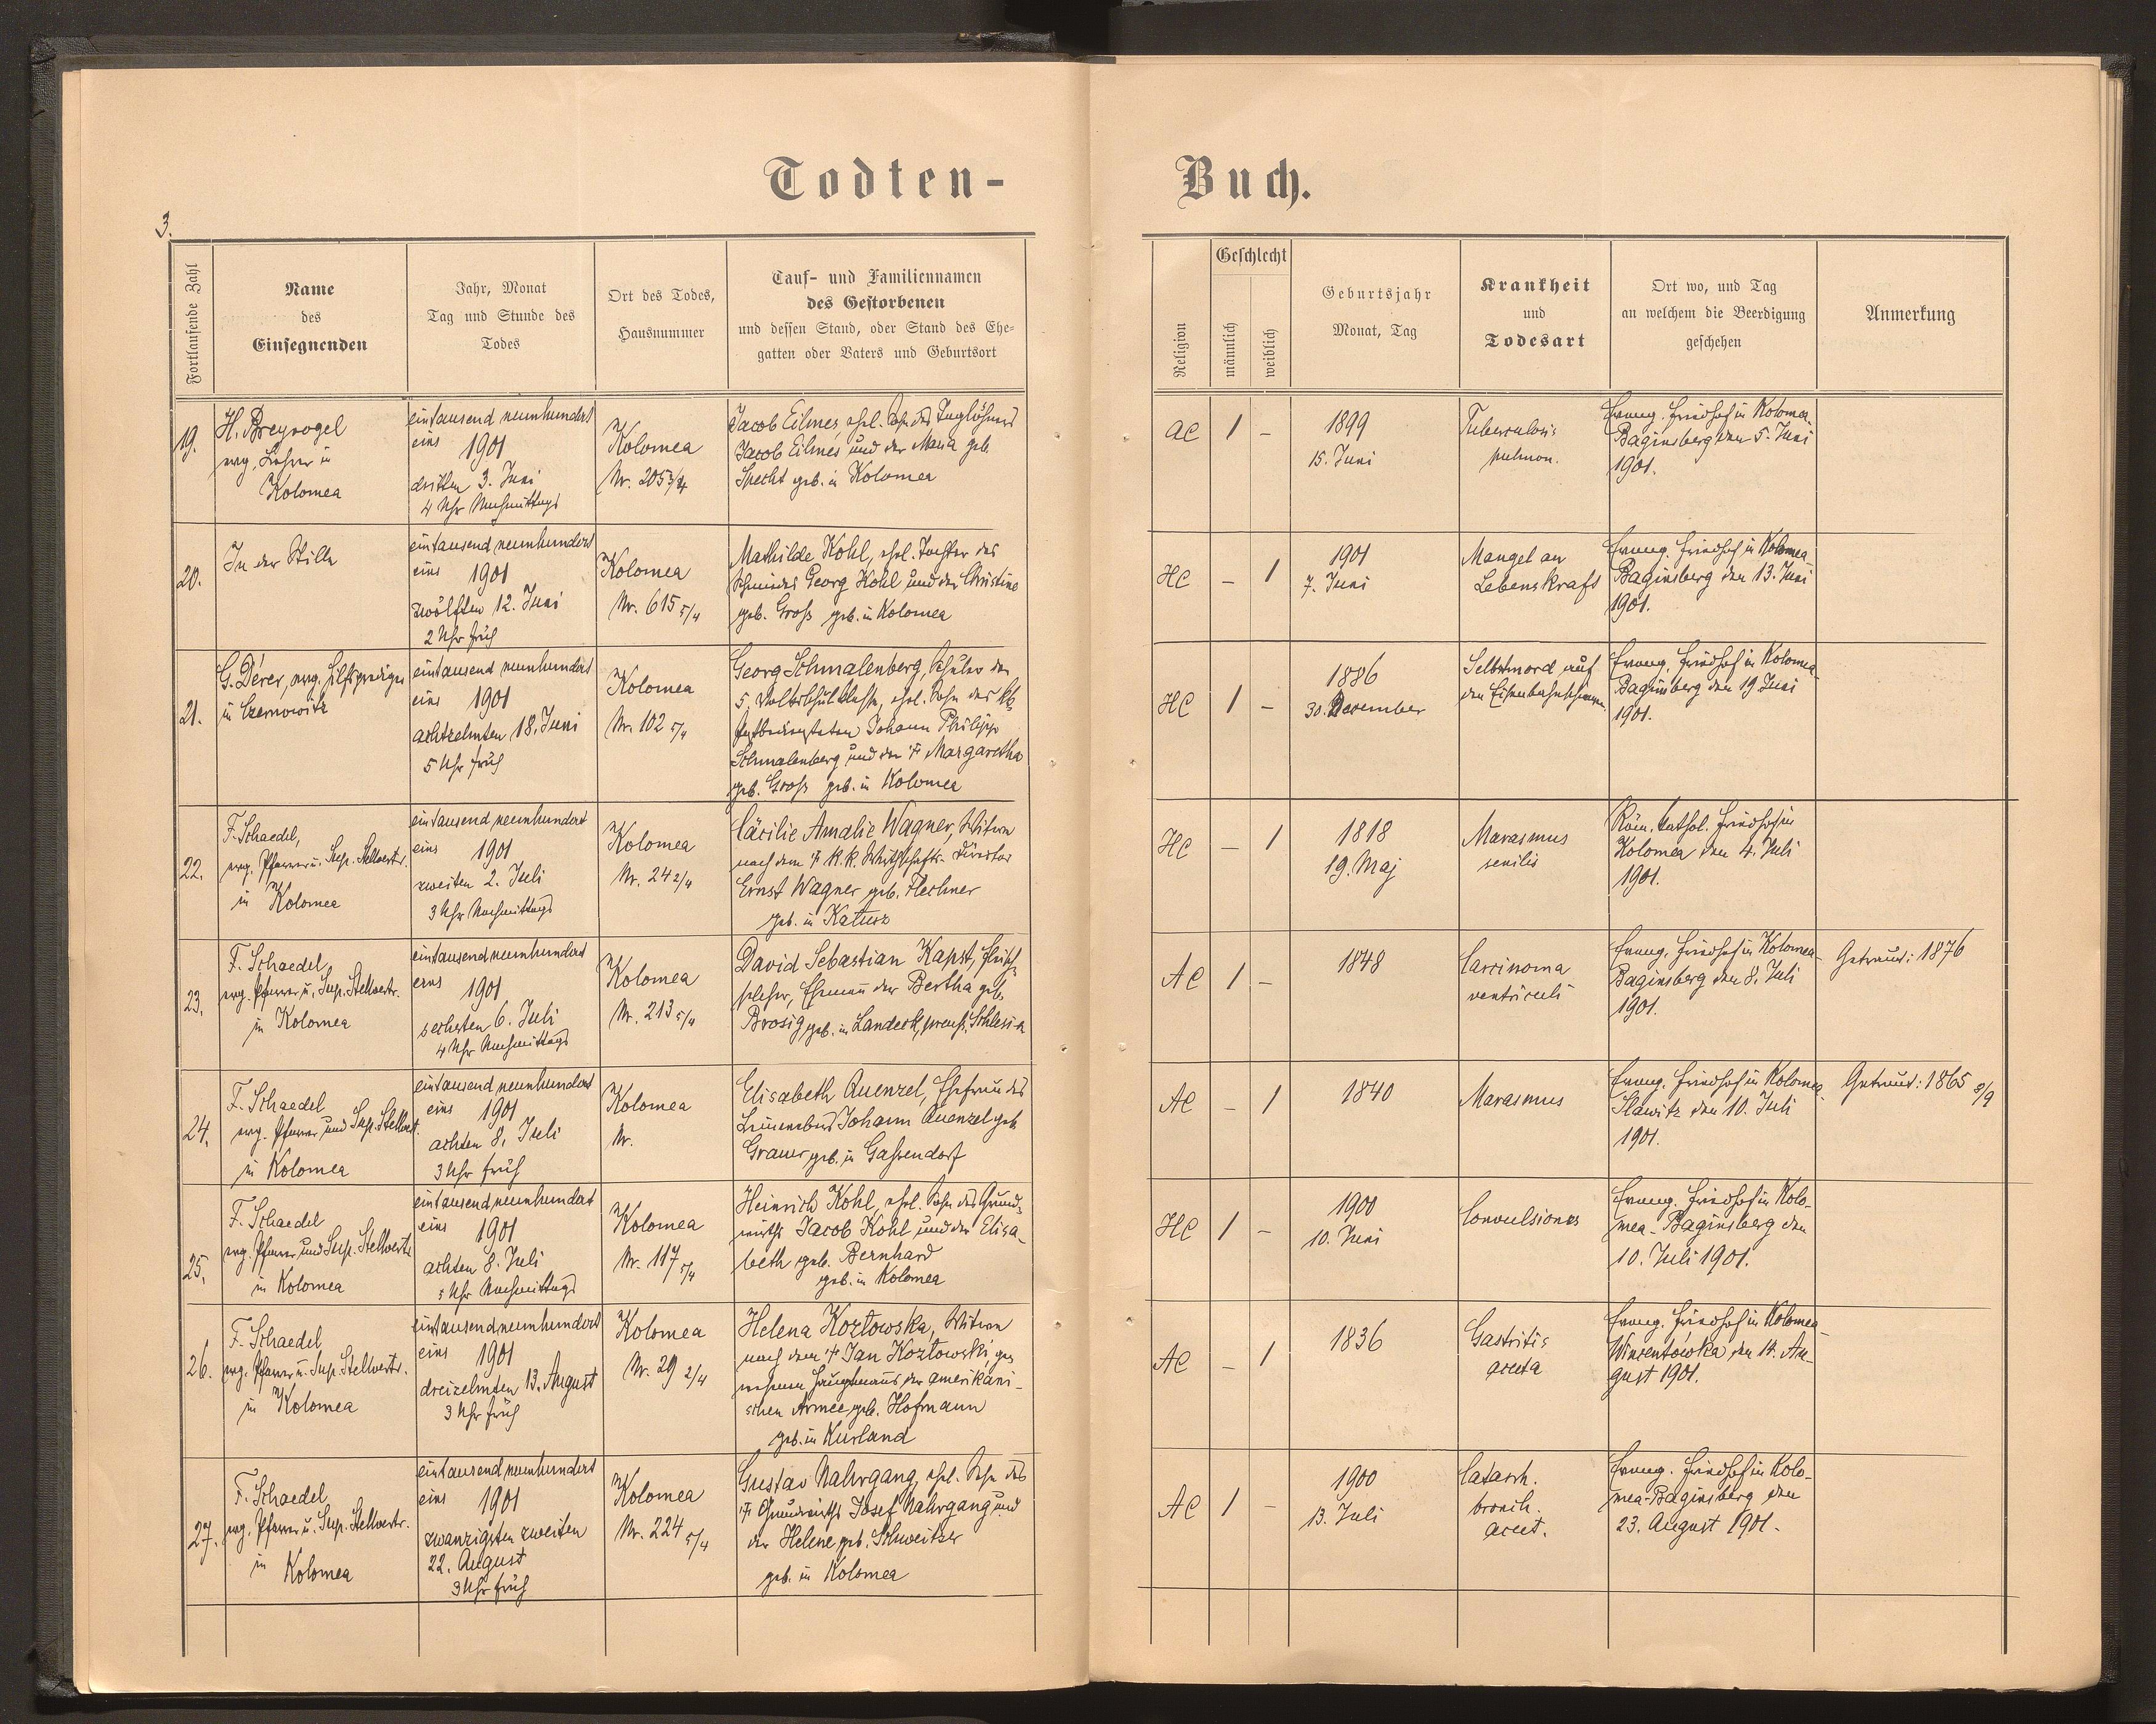 Todten-
Buch.
3.
Fortlaufende Zahl
Name
des
Einsegnenden
Jahr, Monat
Tag und Stunde des
Todes
Ort des Todes,
Hausnummer
Tauf- und Familiennamen
des Gestorbenen
und dessen Stand, oder Stand des Ehe-
gatten oder Vaters und Geburtsort
Religion
Geschlecht
männlich
weiblich
Geburtsjahr
Monat, Tag
Krankheit
und
Todesart
Ort wo, und Tag
an welchem die Beerdigung
geschehen
Anmerkung
19.
H. Breyvogel
evg. Lehrer in
Kolomea
eintausend neunhundert
eins 1901
dritten 3. Juni
4 Uhr Nachmittags
Kolomea
Nr. 205 3/4
Jacob Eilmes ehel. Sohn des Taglöhners
Jacob Eilmes und der Maria geb.
Specht geb. in Kolomea
AC
1
-
1899
15. Juni
Tuberculosis
pulmon.
Evang. Friedhof in Kolomea-
Baginsberg den 5. Juni
1901.
20.
In der Stille
eintausend neunhundert
eins 1901
zwölften 12. Juni
2 Uhr früh
Kolomea
Nr. 615 5/4
Mathilde Kohl, ehel. Tochter des
Schmiedes Georg Kohl und der Christine
geb. Groß geb. in Kolomea
HC
-
1
1901
7. Juni
Mangel an
Lebenskraft
Evang. Friedhof in Kolomea-
Baginsberg den 13. Juni
1901.
21.
G. Dérer, evg. Hilfsprediger
in Czernowitz
eintausend neunhundert
eins 1901
achtzehnten 18. Juni
5 Uhr früh
Kolomea
Nr. 102 5/4
Georg Schmalenberg, Schüler der
5. Volksschulklasse, ehel. Sohn des kk
Johann Philipp
Schmalenberg und der † Margaretha
geb. Groß geb. in Kolomea
HC
1
-
1886
30. Dezember
Selbstmord auf
den Eisenbahnschienen.
Evang. Friedhof in Kolomea-
Baginsberg den 19 Juni
1901.
22.
F. Schaedel,
evg. Pfarrer u. Sup. Stellvertr.
in Kolomea
eintausend neunhundert
eins 1901
zweiten 2. Juli
3 Uhr Nachmittags
Kolomea
Nr. 24 2/4
Cäcilie Amalie Wagner, Witwe
nach dem † k.k. Wirthschafts-Direktor
Ernst Wagner geb. Flechner
geb. in Katusz
HC
-
1
1818
19. Maj
Marasmus
senilis
Röm. kathol. Friedhof in
Kolomea den 4. Juli
1901.
23.
F. Schaedel,
evg. Pfarrer u. Sup. Stellvertr.
in Kolomea
eintausend neunhundert
eins
1901
sechsten 6. Juli
4 Uhr Nachmittags
Kolomea
Nr. 213 5/4
David Sebastian Kapst, Fleisch-
selcher, Ehemann der Bertha geb.
Brosig geb. in Landeck, preuß. Schlesien
AC
1
-
1848
Carcinoma
ventriculi
Evang. Friedhof in Kolomea-
Baginsberg den 8. Juli
1901.
Getraut: 1876
24.
F. Schaedel
evg. Pfarrer und Sup. Stellvert.
in Kolomea
eintausend neunhundert
eins 1901
achten 8. Juli
3 Uhr früh
Kolomea
Nr.
Elisabeth Quenzel, Ehefrau des
Johann Quenzel geb.
Grauer geb. in Gassendorf
AC
-
1
1840
Marasmus
Evang. Friedhof in Kolomea-
Slawitz den 10. Juli
1901.
Getraut: 1865 8/9
25.
F. Schaedel
evg. Pfarrer und Sup. Stellvertr.
in Kolomea
eintausend neunhundert
eins 1901
achten 8. Juli
5 Uhr Nachmittags
Kolomea
Nr. 117 5/4
Heinrich Kohl, ehel. Sohn des Grund-
wirths Jacob Kohl und der Elisa-
beth geb. Bernhard
geb. in Kolomea
HC
1
-
1900
10. Juni
Convulsiones
Evang. Friedhof in Kolo-
mea-Baginsberg den
10. Juli 1901.
26.
F. Schaedel
evg. Pfarrer u. Sup. Stellvertr.
in Kolomea
eintausend neunhundert
eins 1901
dreizehnten 13. August
3 Uhr früh
Kolomea
Nr. 29 2/4
Helena Kozłowska, Witwe
nach dem † Jan Kozłowski, ge-
wesenen Hauptmanns der amerikani-
schen Armee geb. Hofmann
geb. in Kurland
AC
-
1
1836
Gastritis
acuta
Evang. Friedhof in Kolomea-
Wincentówka den 14. Au-
gust 1901.
27.
F. Schaedel
evg. Pfarrer u. Sup. Stellvertr.
in Kolomea
eintausend neunhundert
eins 1901
zwanzigsten zweiten
22. August
3 Uhr früh
Kolomea
Nr. 224 5/4
Gustav Nahrgang, ehel. Sohn des
† Grundwirths Josef Nahrgang und
der Helene geb. Schweitzer
geb. in Kolomea
AC
1
-
1900
13. Juli
Catarrh.
bronch.
acut.
Evang. Friedhof in Kolo-
mea-Baginsberg den
23. August 1901.